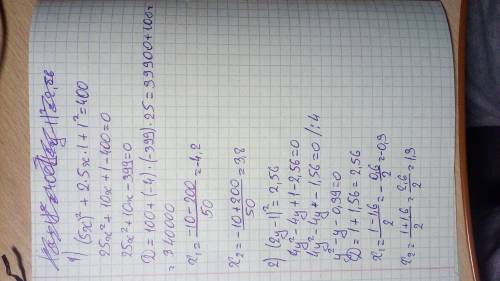 1) (5x)² + 2·5x·1 + 1² = 400
25x² + 10x + 1 - 400 = 0
25x² + 10x - 399 = 0
D = 100 + (-4)·(-399)·25 = 39900 + 100 =
= 340000
x₁ = (-10-200)/50 = -4,2
x₂ = (-10+200)/50 = 3,8
2) (2y-1)² = 2,56
4y² - 4y + 1 - 2,56 = 0
4y² - 4y - 1,56 = 0 /:4
y² - y - 0,39 = 0
D = 1 + 1,56 = 2,56
x₁ = (1-1,6)/2 = -0,6/2 = -0,3
x₂ = (1+1,6)/2 = 2,6/2 = 1,3